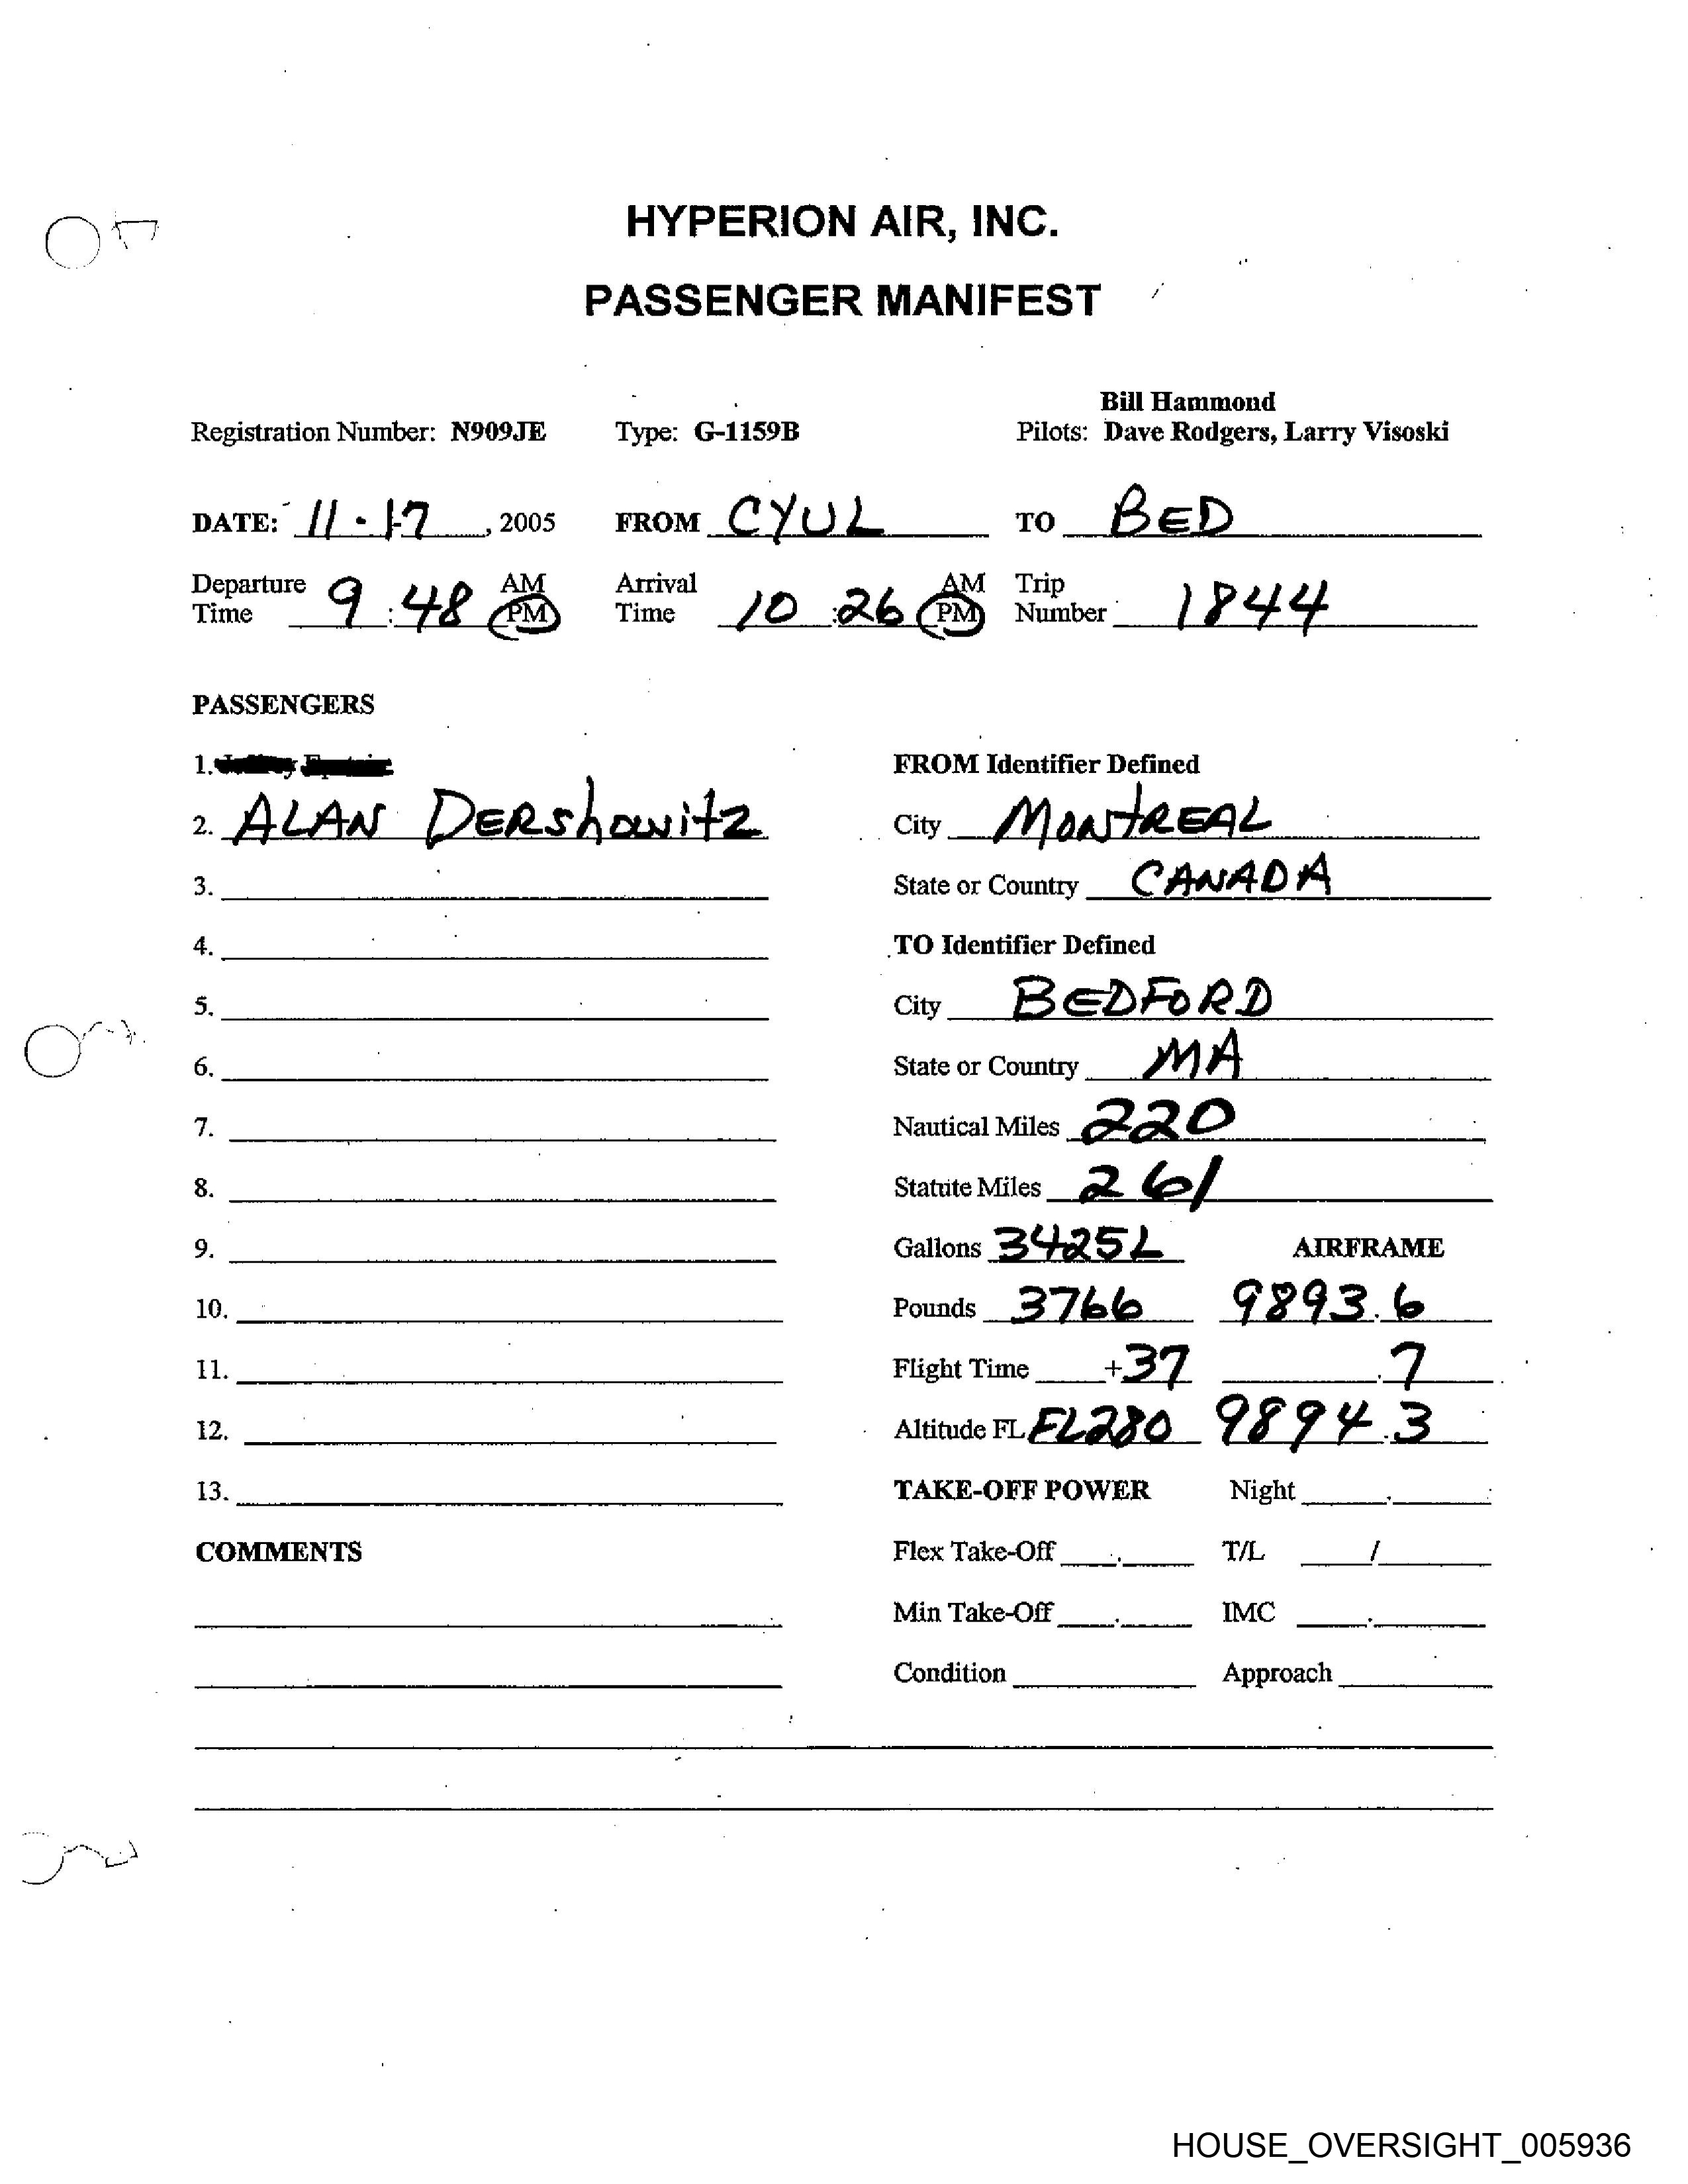 HYPERION AIR, INC.
PASSENGER MANIFEST
Bill Hammond
Registration Number: N909JE Type: G-1159B Pilots: Dave Rodgers, Larry Visoski
DATE: 11-17, 2005 FROM CYUL TO BED
Departure AM Arrival AM Trip
Time 9:48 PM Time 10:26 PM Number 1844
PASSENGERS
1. FROM Identifier Defined
2. ALAN DERShowitz City MONtREAL
3. State or Country CANADA
4. TO Identifier Defined
5. City BEDFORD
6. State or Country MA
7. Nautical Miles 220
8. Statute Miles 261
9. Gallons 3425L AIRFRAME
10. Pounds 3766 9893.6
11. Flight Time +37 .7
12. Altitude FL FL280 9894.3
13. TAKE-OFF POWER Night .
COMMENTS Flex Take-Off . T/L /
Min Take-Off . IMC .
Condition Approach
HOUSE_OVERSIGHT_005936